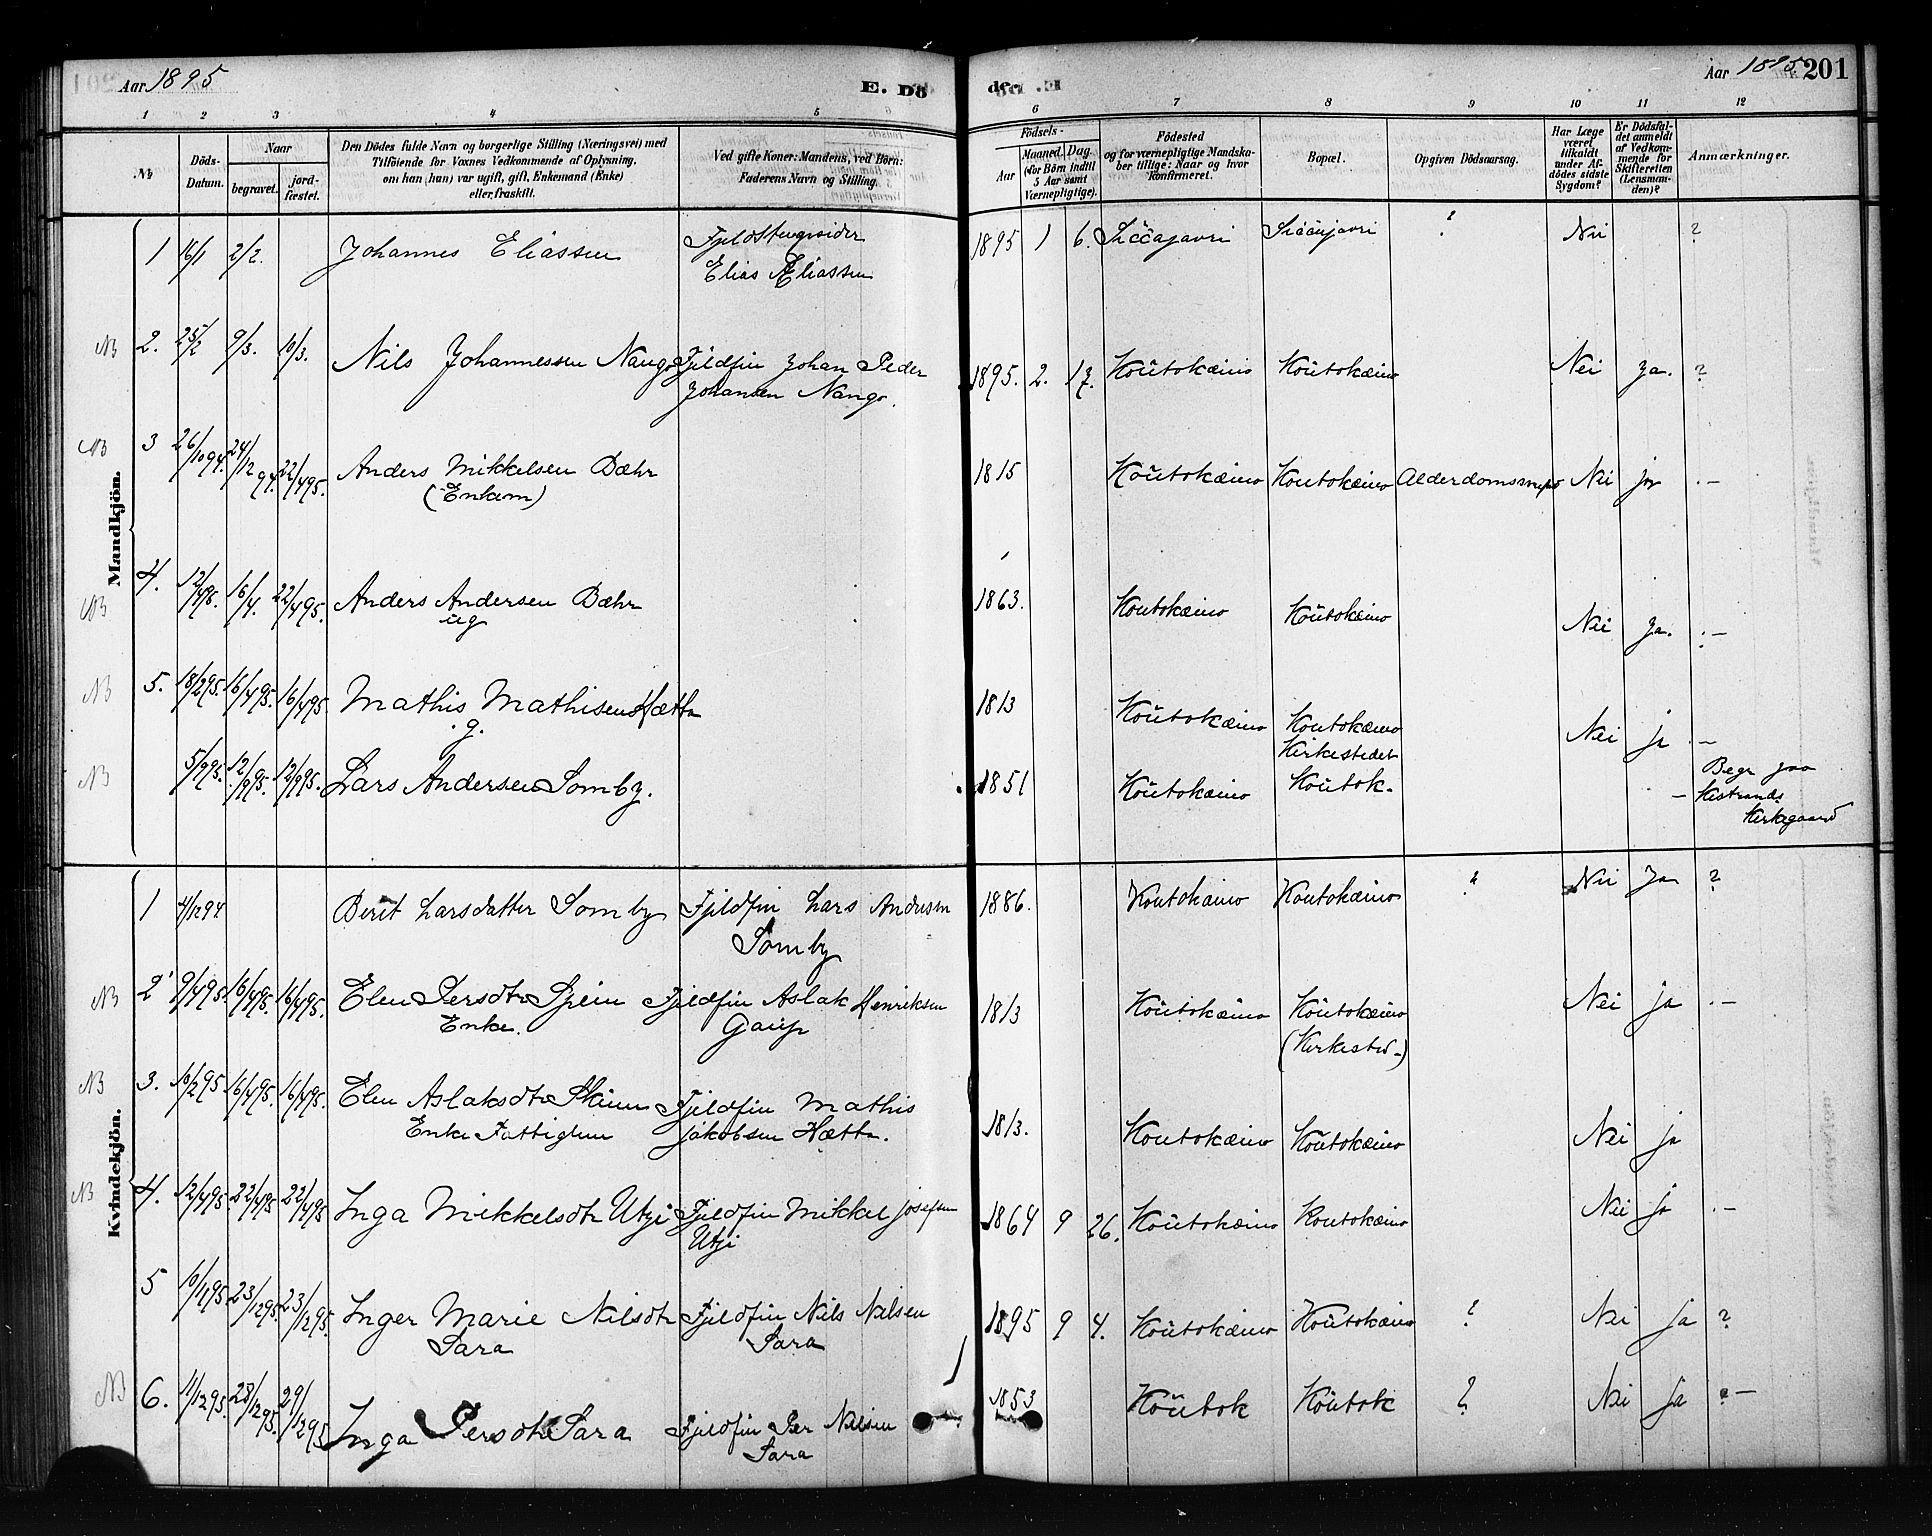 Aar 1895
E. Dö
de.
Aar 1895 201
1 2 3 4 5 6 7 8 9 10 11 12
No
Döds-Datum.
Naar
begravet.
jord-fæstet.
Den Dödes fulde Navn og borgerlige Stilling (Næringsvei) med
Tilföiende for Voxnes Vedkommende af Oplysning,
om han (hun) var ugift, gift, Enkemand (Enke)
eller fraskilt.
Ved gifte Koner: Mandens, ved Börn:
Faderens Navn og Stilling.
Födsels-
Aar
Maaned. Dag.
(for Börn indtil
5 Aar samt
Værnepligtige).
Födested
og for værnepligtige Mandska-
ber tillige: Naar og hvor
konfirmeret.
Bopæl.
Opgiven Dödsaarsag.
Har Læge
været
tilkaldt
under Af-
dödes sidste
Sygdom?
Er Dödsfal-
det anmeldt
af Vedkom-
mende for
Skifteretten
(Lensman-
den)?
Anmærkninger.
Mandkjön.
1 16/1 2/2. Johannes Eliassen Elias Eliassen 1895 1 6. ? Nei ?
NB 2. 25/2 9/3. 10/3. Nils Johannessen Nango Fjeldfin Johan Peder 1895. 2. 17. Koutokæino Koutokæino Nei Ja. ?
Johansen Nango.
NB 3 26/10 94. 24/12 94. 22/4 95. Anders Mikkelsen Bæhr 1815 Koutokæino Koutokæino Nei ja -
(Enkem)
NB 4. 12/4 95. 16/4. 22/4 95. Anders Andersen Bæhr 1863. Koutokæino Koutokæino Nei Ja. -
ug
NB 5. 18/2 95. 16/4 95. 16/4 95. Mathis Mathisen Hætta 1813 Koutokæino Koutokæino Nei ja -
g. Kirkestedet
NB 5/9 95. 12/9 95. 12/9 95. Lars Andersen Somby. 1851 Koutokæino Koutok. - Begr paa
Kistrands
Kirkegaard
Kvindekjön.
1 4/12 94 Berit Larsdatter Somby Fjeldfin Lars Andersen 1886. Koutokæino Koutokæino ? Nei Ja ?
Somby
NB 2 9/4 95. 16/4 95. 16/4 95. Elen Persdtr Spein Fjeldfin Aslak Henriksen 1813 Koutokæino Koutokæino Nei ja -
Enke. Gaup (Kirkested-)
NB 3. 10/2 95. 16/4 95. 16/4 95. Elen Aslaksdtr Skum Fjeldfin Mathis 1813. Koutokæino Koutokæino Nei ja
Enke Fattiglem Jakobsen Hætta.
NB 4. 12/4 95. 22/4 95 22/4 95 Inga Mikkelsdtr Utzi Fjeldfin Mikkel Josefsen 1864 9 26. Koutokæino Koutokæino Nei ja -
Utzi
5 10/11 95 23/12 95. 23/12 95. Inger Marie Nilsdtr Fjeldfin Nils Nilsen 1895 9 4. Koutokæino Koutokæino ? Nei ja ?
Sara Sara
NB 6. 11/12 95. 28/12 95. 29/12 95 Inga Persdtr Sara Fjeldfin Per Nilsen 1853 Koutok Koutok ? Nei ja -
Sara